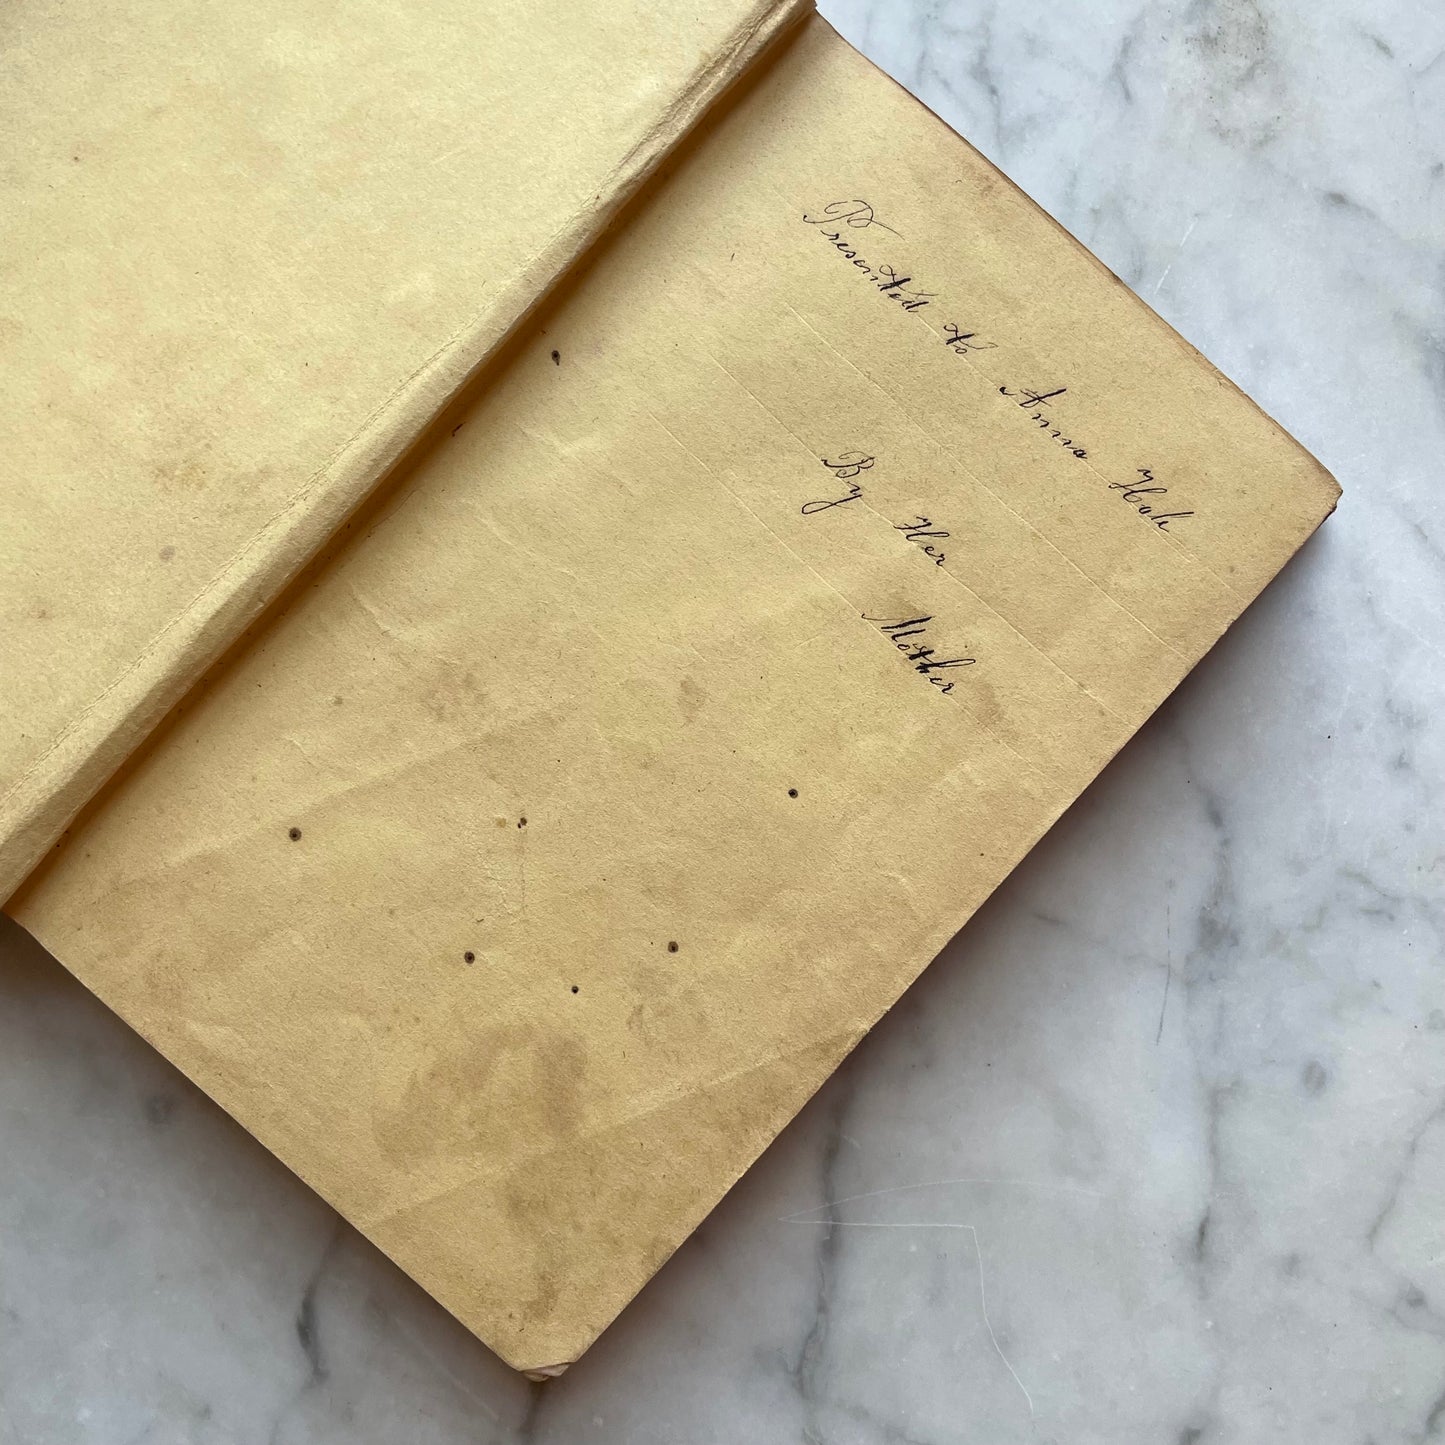 Presented to Anna
By Her
Mother